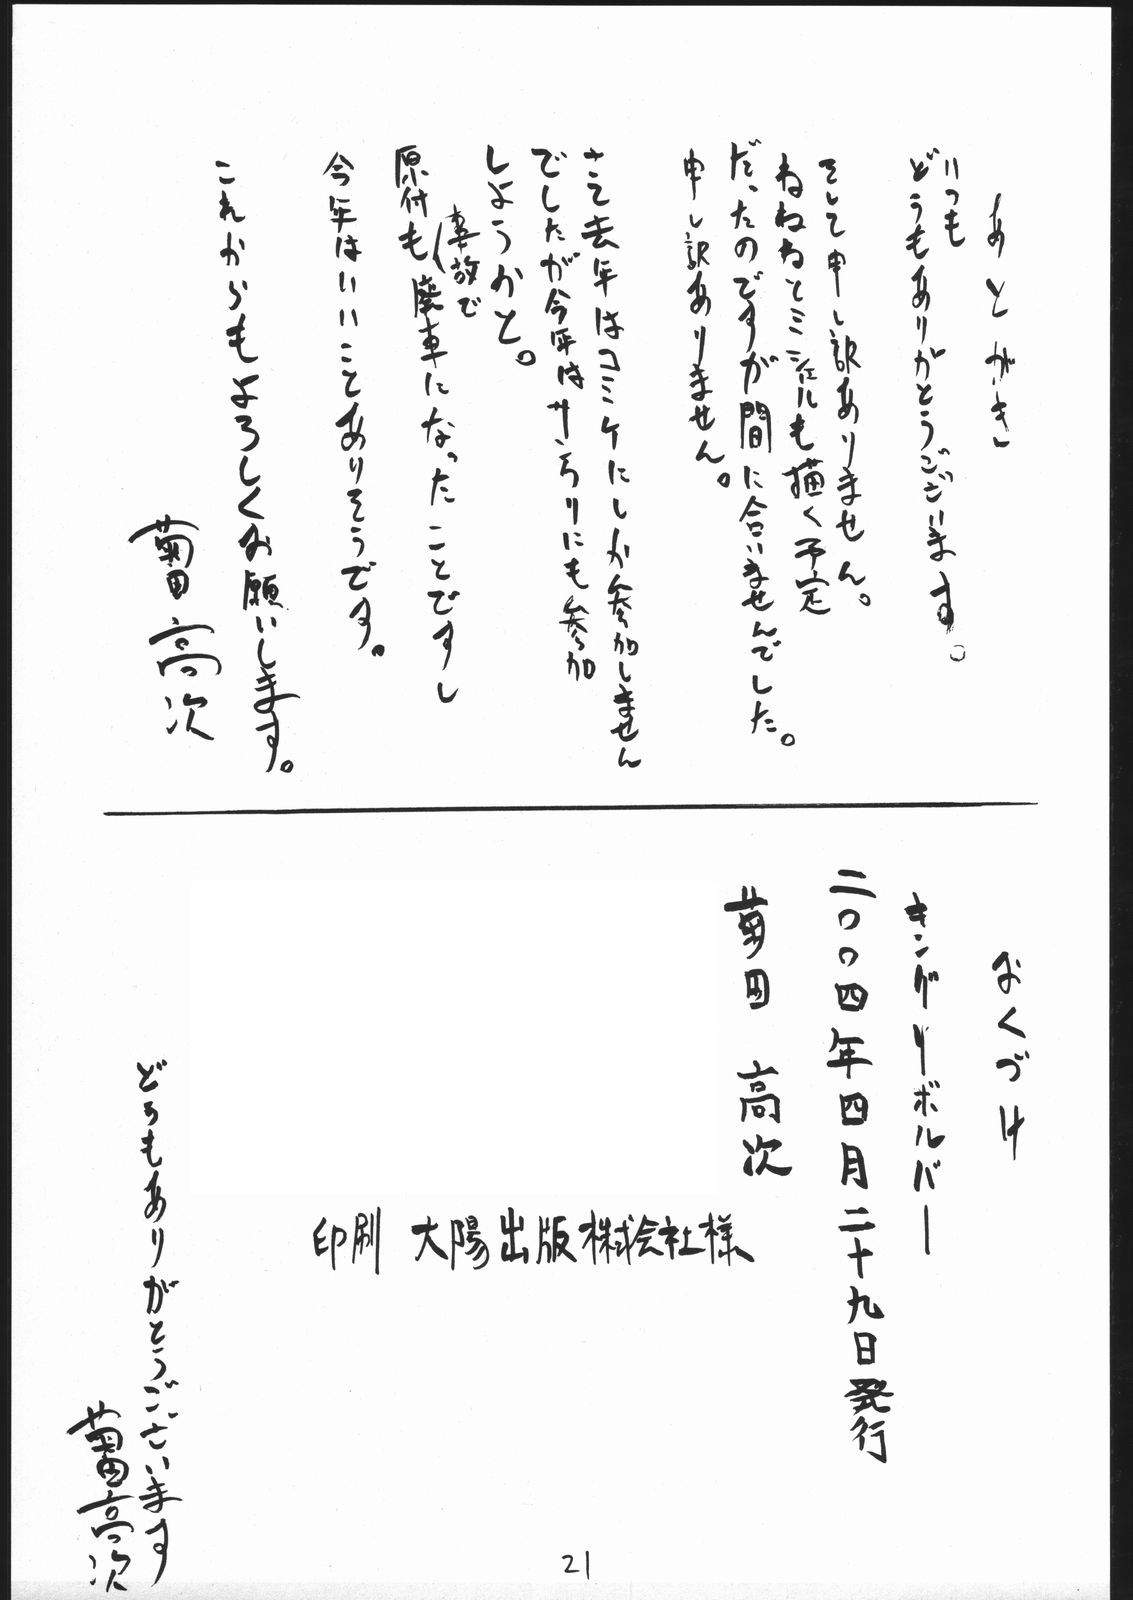 あとがき
いつも
どうもありがとうございます。
そして申し訳ありません。
ねねねとミシェルも描く予定
だったのですが間に合いませんでした。
申し訳ありません。
さて去年はコミケにしか参加しません
でしたが今年はサンクリにも参加
しようかと。
事故で
原付も廃車になったことですし
今年はいいことありそうです。
これからもよろしくお願いします。
菊田 高次
おくづけ
キングリボルバー
二〇〇四年四月二十九日発行
菊田 高次
印刷 大陽出版株式会社様
どうもありがとうございます
菊田高次
21